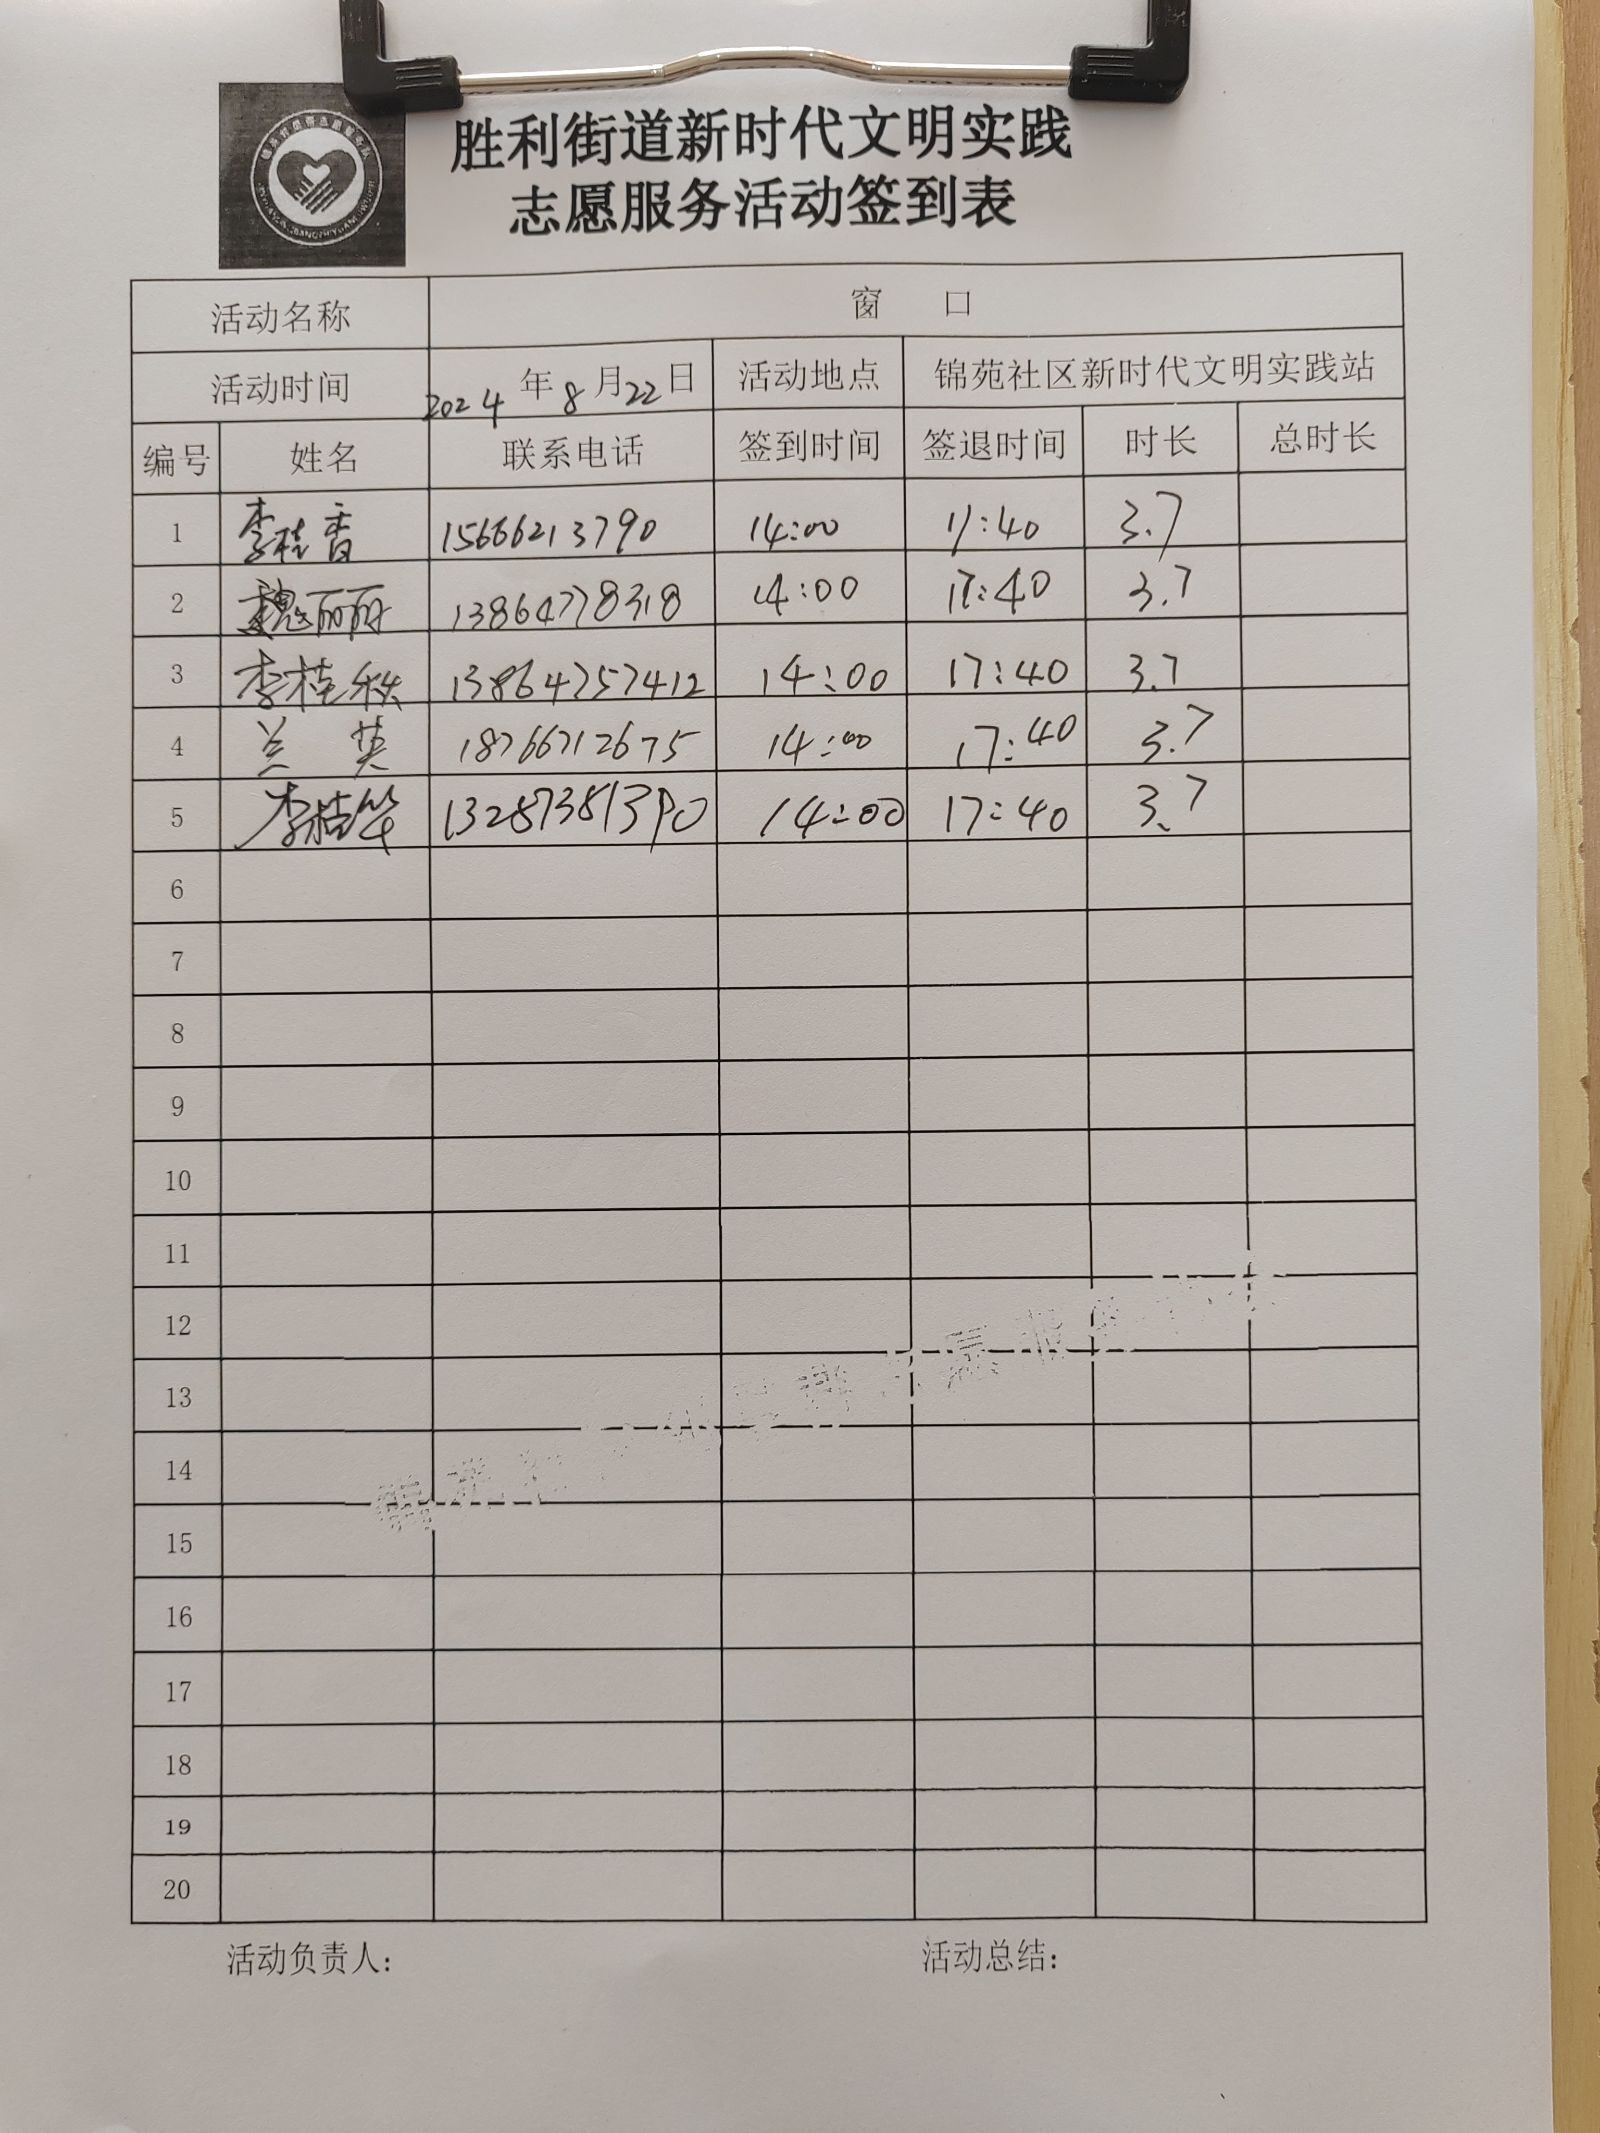 胜利街道新时代文明实践
志愿服务活动签到表
活动名称 窗 口
活动时间 2024 年 8 月 22 日 活动地点 锦苑社区新时代文明实践站
编号 姓名 联系电话 签到时间 签退时间 时长 总时长
1 李桂香 15666213790 14:00 17:40 3.7
2 魏丽丽 13864778318 14:00 17:40 3.7
3 李桂秋 13864757412 14:00 17:40 3.7
4 兰 英 18766712675 14:00 17:40 3.7
5 李桂华 13287381390 14:00 17:40 3.7
6
7
8
9
10
11
12
13
14
15
16
17
18
19
20
活动负责人: 活动总结: